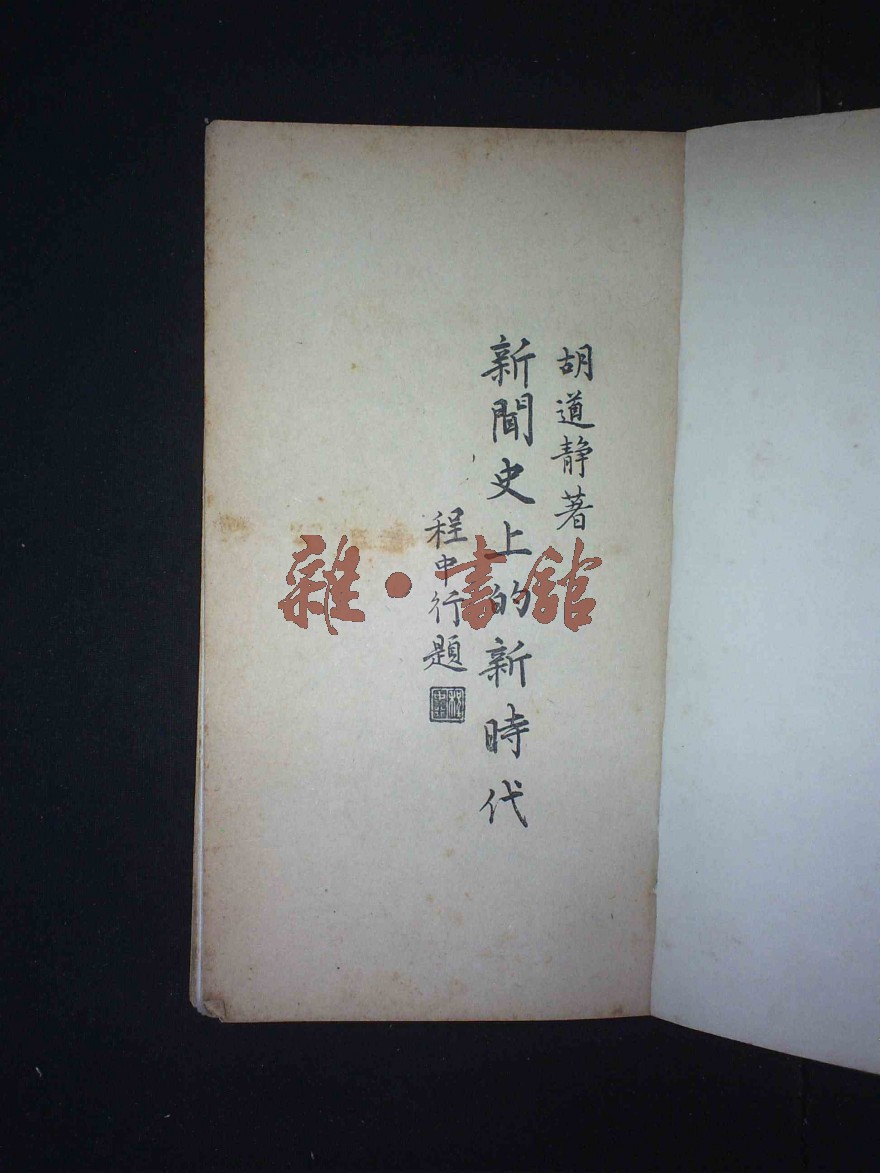 胡道静著
新聞史上的新時代
程中行題
雜·書館